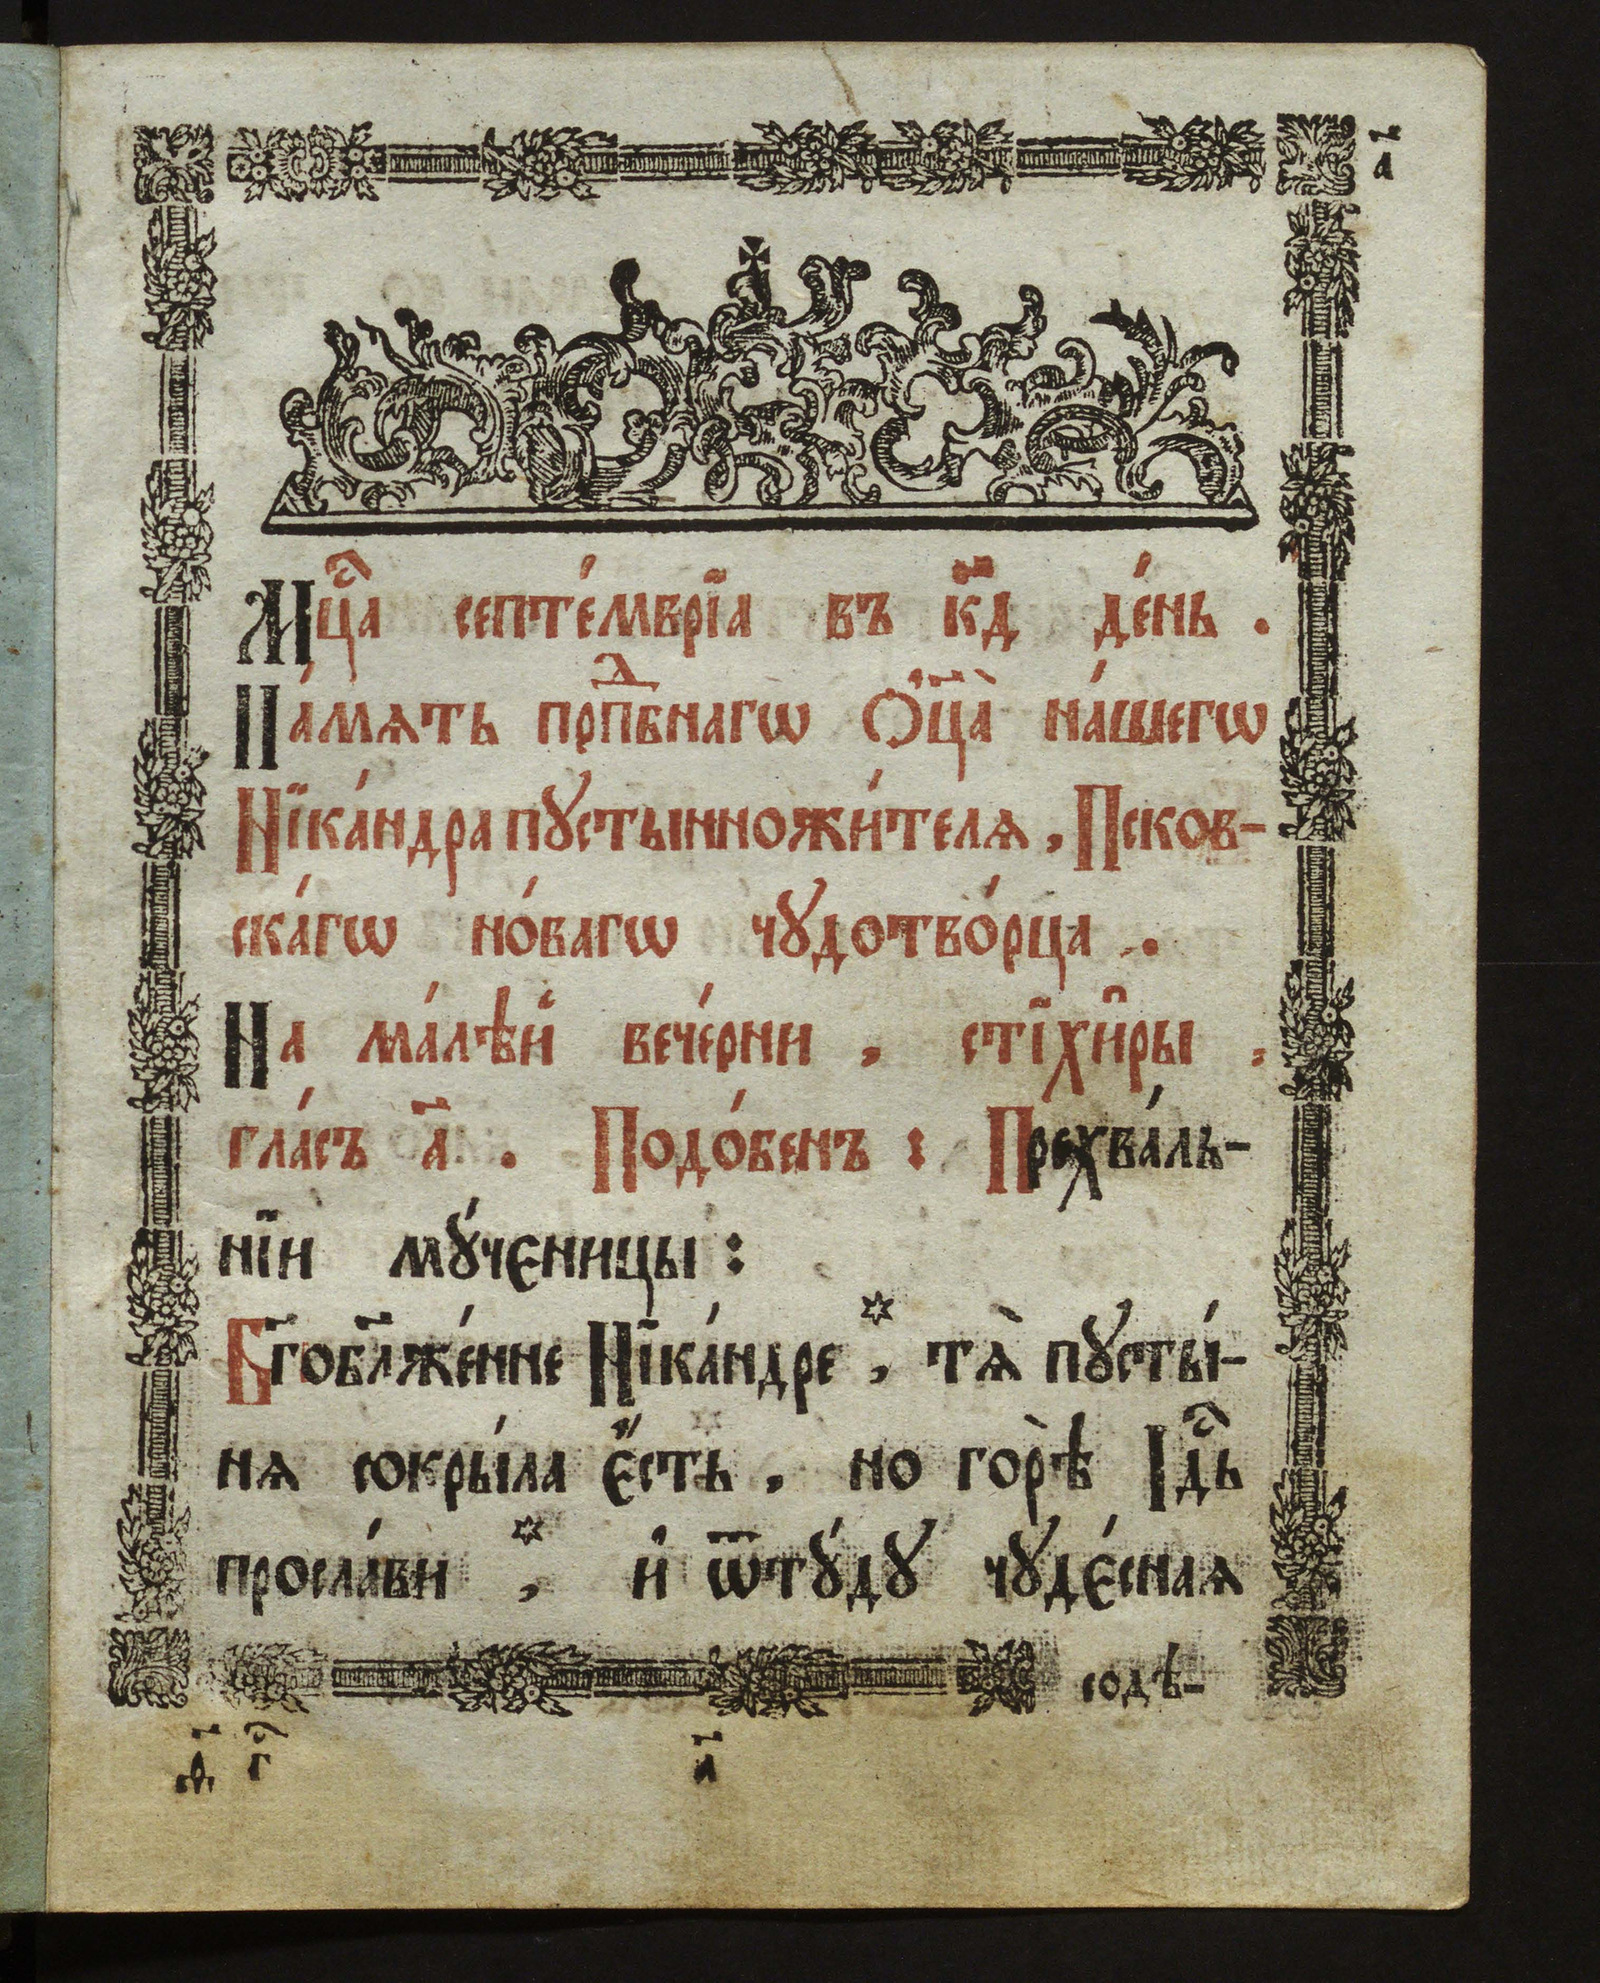 а҃
Мцⷭ҇а септе́мврїа въ к҃д де́нь .
Па́мять прпⷣбнагѡ Ѻ҆ц҃а̀ на́шегѡ
Нїка́ндра пꙋстынножи́телѧ , Псков-
ска́гѡ но́вагѡ чꙋдотво́рца .
На ма́лѣй вече́рни , стїхи̑ры ,
гла́съ а҃ . Подо́бенъ : Прехва́ль-
нїи мꙋ́чєницы :
Бг҃обл҃же́нне Нїка́ндре * , тѧ̀ пꙋсты́-
нѧ сокры́ла є҆́сть , но горѣ̀ Гдⷭ҇ь
просла́ви * , и҆ ѿтꙋ́дꙋ чꙋдє́снаѧ
содѣ-
г҃ а҃